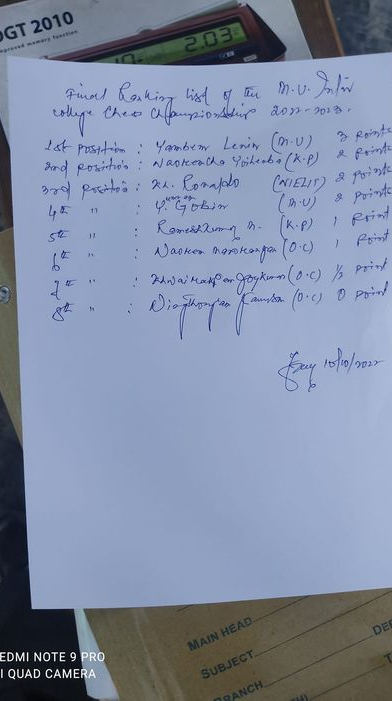 DGT 2010
improved memory function
2.03
Final Ranking List of the M.U. Inter
college Chess Championship 2022-2023.
1st position : Yambem Lenin (M.U) 3 points
2nd position : Naorem Yoihenba (K.P) 2 points
3rd position : Kh. Ronaldo (NIELIT) 2 points
4th " : Y. Gobin (M.U) 2 points
5th " : N. (K.P) 1 point
6th " : Naorem (O.C) 1 point
7th " : (O.C) 1/2 point
8th " : (O.C) 0 point
10/10/2022
MAIN HEAD
SUBJECT
BRANCH
REDMI NOTE 9 PRO
AI QUAD CAMERA